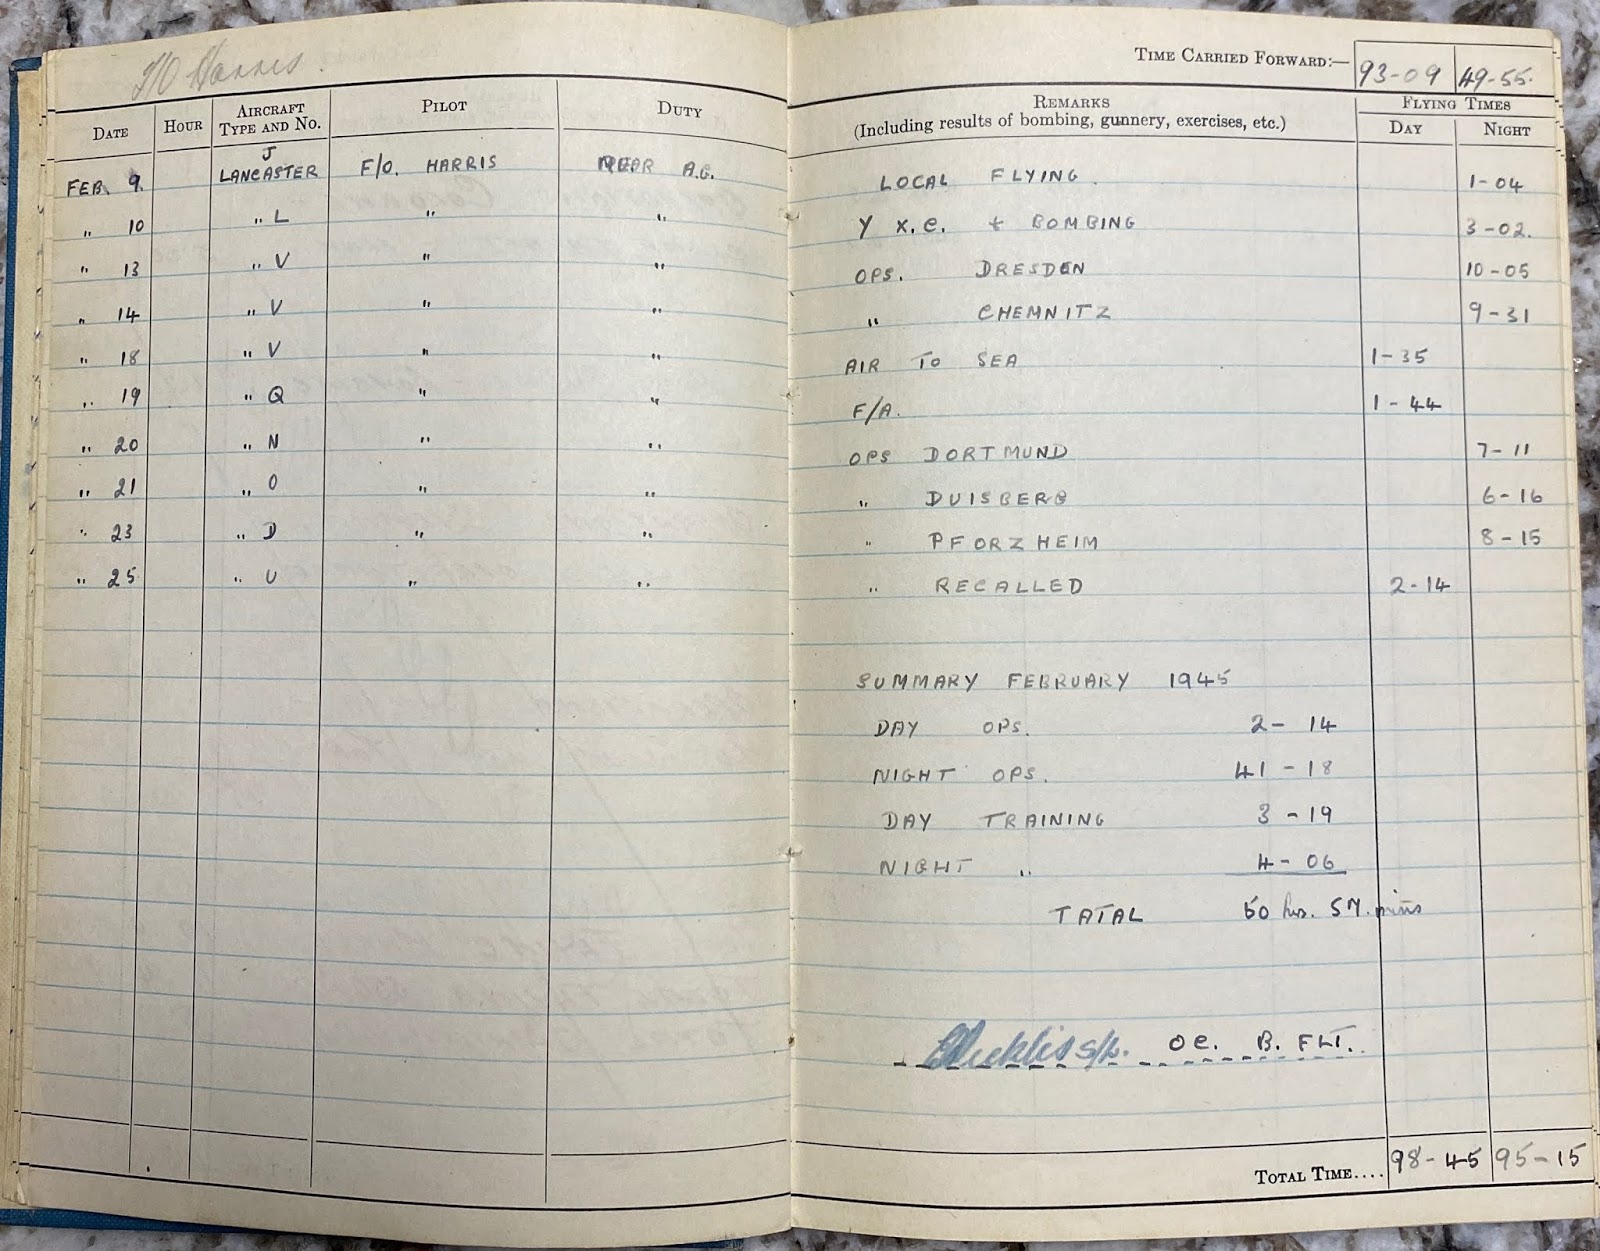 F/O Harris.
TIME CARRIED FORWARD:— 93-09 49-55.
DATE HOUR AIRCRAFT TYPE AND NO. PILOT DUTY REMARKS (Including results of bombing, gunnery, exercises, etc.) FLYING TIMES DAY NIGHT
FEB. 9. J LANCASTER F/O. HARRIS REAR A.G. LOCAL FLYING. 1-04
" 10 " L " " Y X.C. + BOMBING 3-02.
" 13 " V " " OPS. DRESDEN 10-05
" 14 " V " " " CHEMNITZ 9-31
" 18 " V " " AIR TO SEA 1-35
" 19 " Q " " F/A. 1-44
" 20 " N " " OPS DORTMUND 7-11
" 21 " O " " " DUISBERG 6-16
" 23 " D " " " PFORZHEIM 8-15
" 25 " U " " " RECALLED 2-14
SUMMARY FEBRUARY 1945
DAY OPS. 2-14
NIGHT OPS. 41-18
DAY TRAINING 3-19
NIGHT " 4-06
TATAL 50 hrs. 57. mins
S/L. OC. B. FLT.
TOTAL TIME.... 98-45 95-15